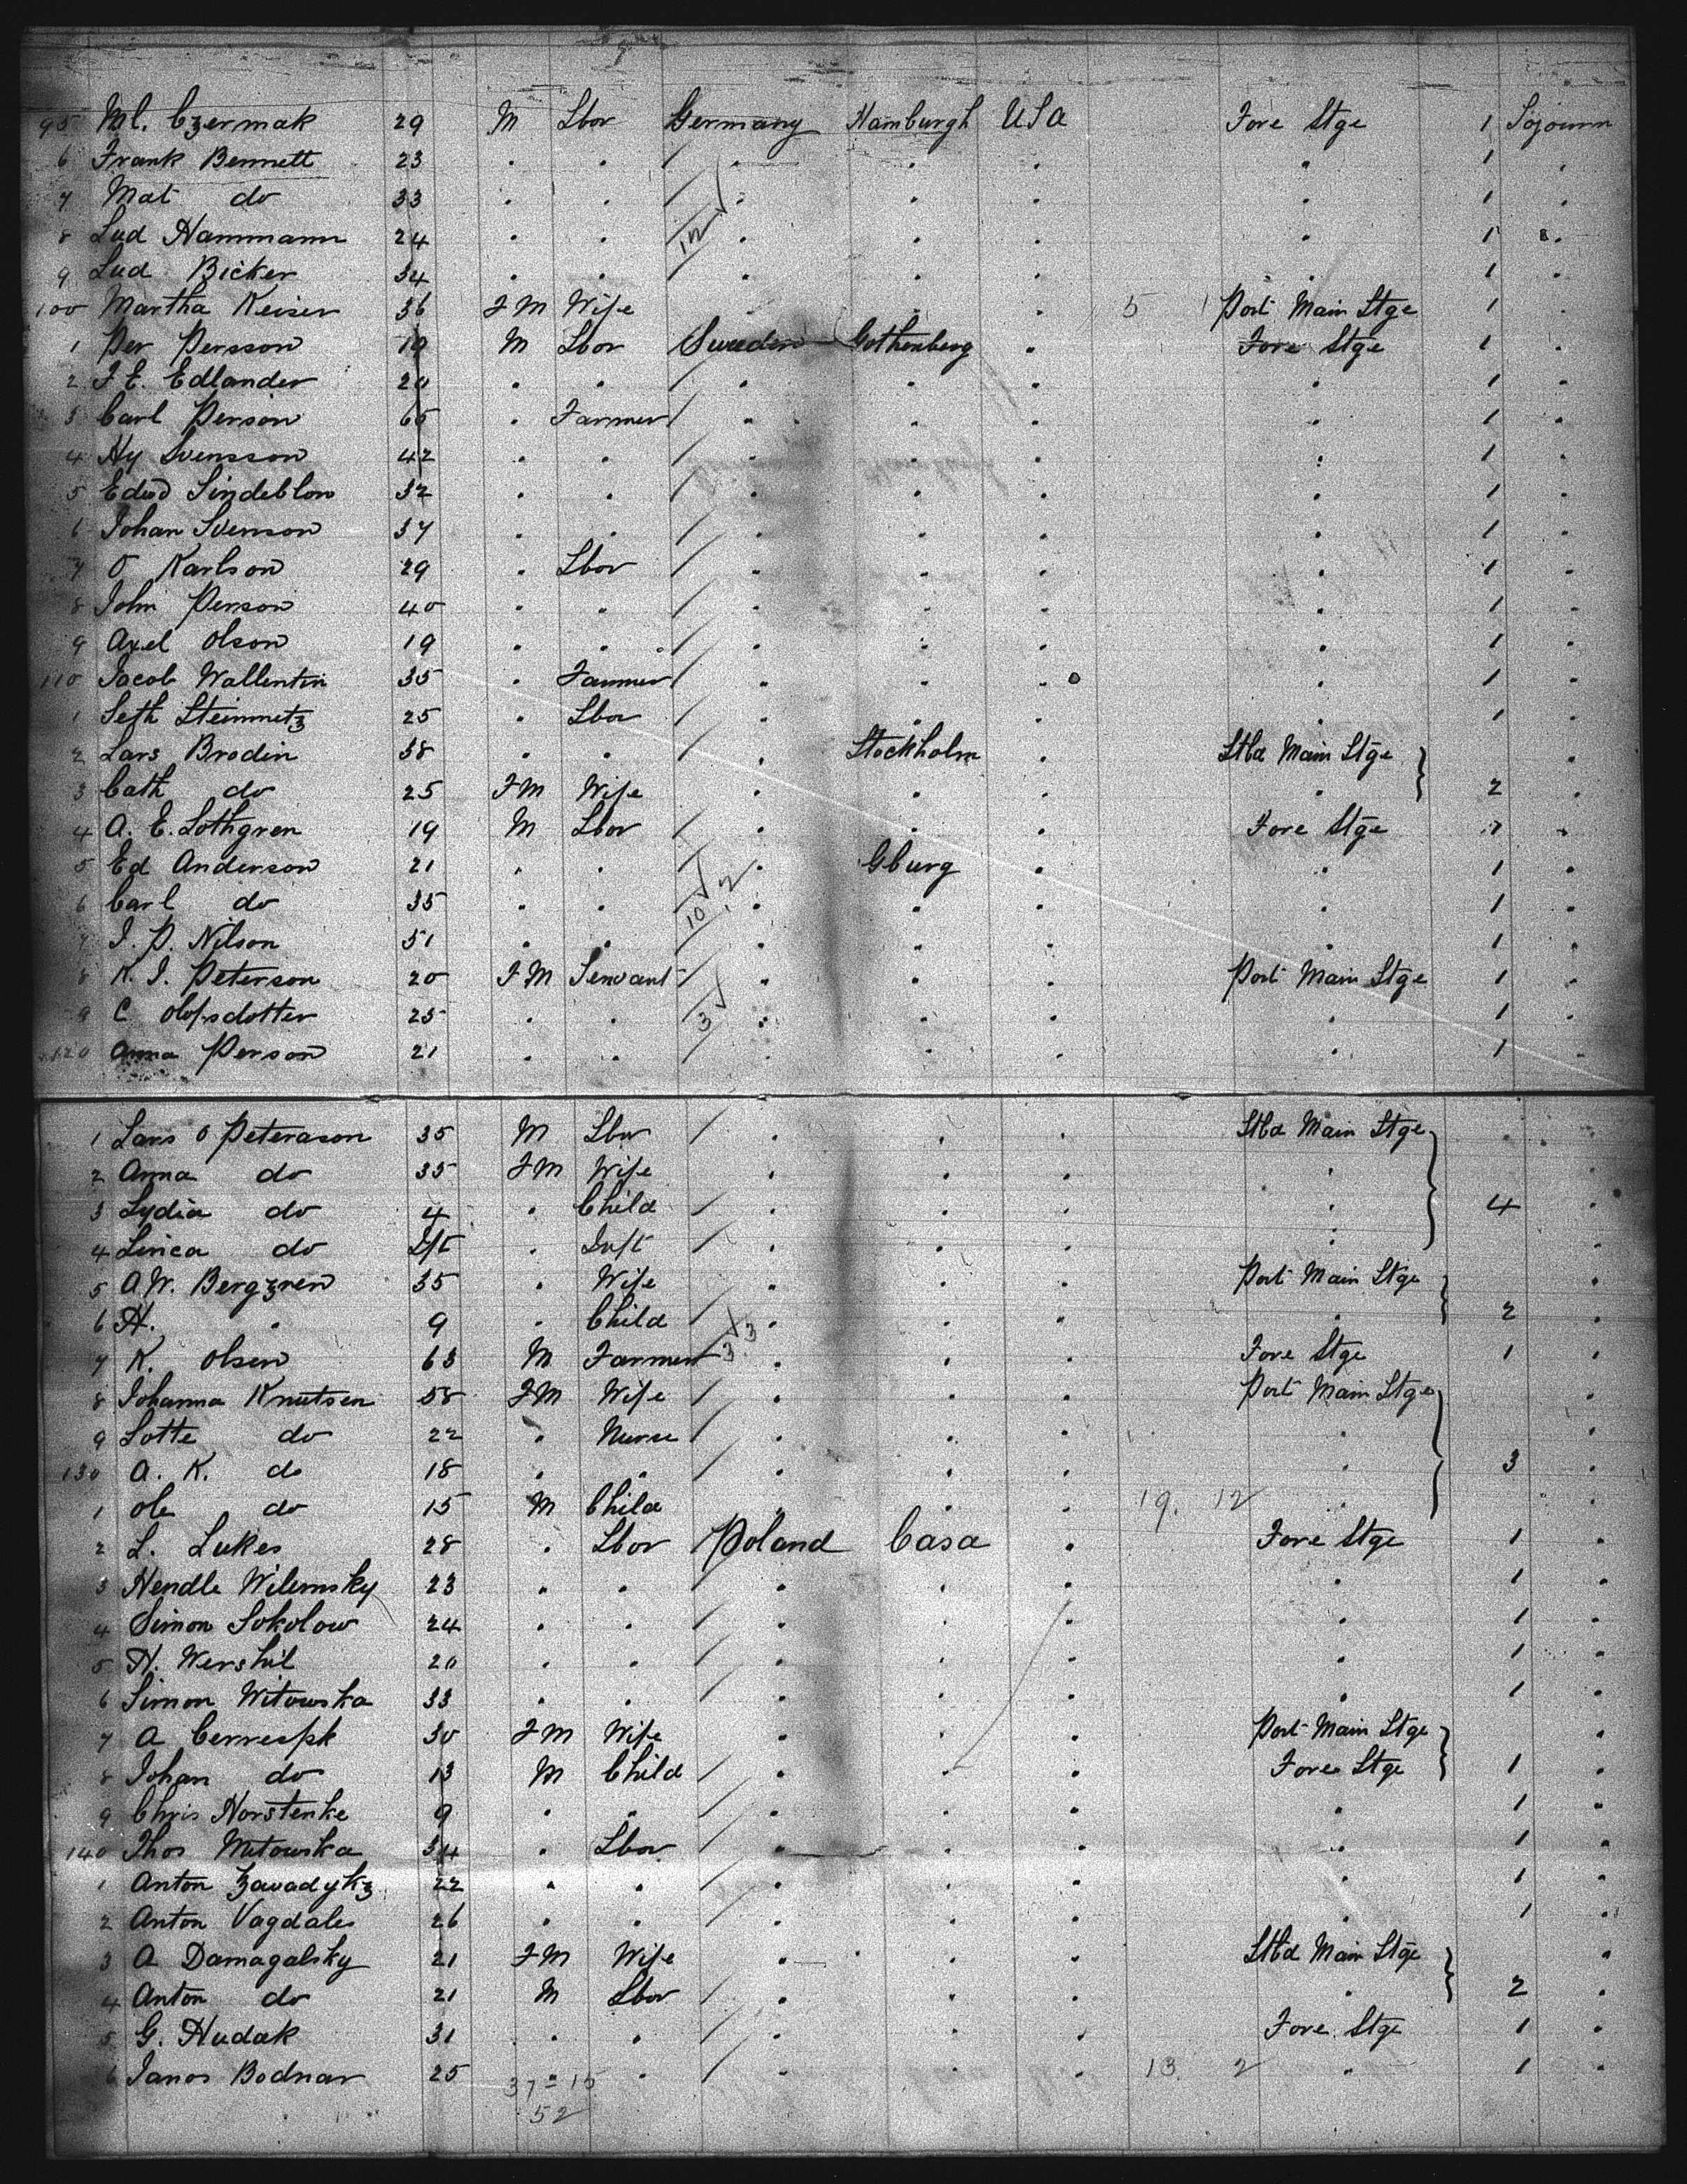 95 Ml. Czermak 29 M Lbor Germany Hamburgh USA Fore Stge 1 Sojourn
6 Frank Bennett 23 " " " " " " 1 "
7 Mat do 33 " " " " " " 1 "
8 Lud Hammann 24 " " 12 " " " " 1 "
9 Lud Bicker 34 " " " " " " 1 "
100 Martha Keiser 36 FM Wife " " 5 1 Port Main Stge 1 "
1 Per Persson 19 M Lbor Sweden Gothenberg " Fore Stge 1 "
2 F E. Edlander 20 " " " " " " 1 "
3 Carl Person 65 " Farmer " " " " 1 "
4 Hy Svensson 42 " " " " " " 1 "
5 Edwd Lindeblow 32 " " " " " " 1 "
6 Johan Svenson 37 " " " " " " 1 "
7 O Karlson 29 " Lbor " " " " 1 "
8 John Person 40 " " " " " " 1 "
9 Axel Olson 19 " " " " " " 1 "
110 Jacob Wallentin 35 " Farmer " " " " 1 "
1 Seth Steinmetz 25 " Lbor " " " " 1 "
2 Lars Brodin 38 " " " Stockholm " Stbd Main Stge "
3 Cath do 25 FM Wife " " " " 2 "
4 A. E. Lothgren 19 M Lbor " " " Fore Stge 1 "
5 Ed Anderson 21 " " " Gburg " " 1 "
6 Carl do 35 " " 10 2 " " " " 1 "
7 J. P. Nilson 51 " " " " " " 1 "
8 K. J. Peterson 20 FM Servant " " " Port Main Stge 1 "
9 C Olofsdotter 25 " " 3 " " " " 1 "
120 Anna Person 21 " " " " " " 1 "
1 Lars O Peterason 35 M Lbor " " " Stbd Main Stge "
2 Anna do 35 FM Wife " " " " "
3 Lydia do 4 " Child " " " " 4 "
4 Linea do Ift " Inft " " " " "
5 A.W. Bergzren 35 " Wife " " " Port Main Stge "
6 H. " 9 " Child 3 " " " " 2 "
7 K. Olsen 63 M Farmer 3 " " " Fore Stge 1 "
8 Johanna Knutsen 58 FM Wife " " " Port Main Stge "
9 Lotte do 22 " Nurse " " " " "
130 A. K. do 18 " " " " " " 3 "
1 Ole do 15 M Child " " " 19. 12 " "
2 L. Lukes 28 " Lbor Poland Casa " Fore Stge 1 "
3 Hendle Wilemsky 23 " " " " " " 1 "
4 Simon Sokolow 24 " " " " " " 1 "
5 H. Wershil 20 " " " " " " 1 "
6 Simon Witowska 33 " " " " " " 1 "
7 A 30 FM Wife " " " Port Main Stge "
8 Johan do 13 M Child " " " Fore Stge 1 "
9 Chris Horstenke 9 " " " " " " 1 "
140 Thos Mitowska 34 " Lbor " " " " 1 "
1 Anton Zavadykz 22 " " " " " " 1 "
2 Anton Vagdales 26 " " " " " " 1 "
3 A Damagalsky 21 FM Wife " " " Stbd Main Stge "
4 Anton do 21 M Lbor " " " " 2 "
5 G. Hudak 31 " " " " " Fore Stge 1 "
6 Janos Bodnar 25 " " " " " 13. 2 " 1 "
37 = 15
52